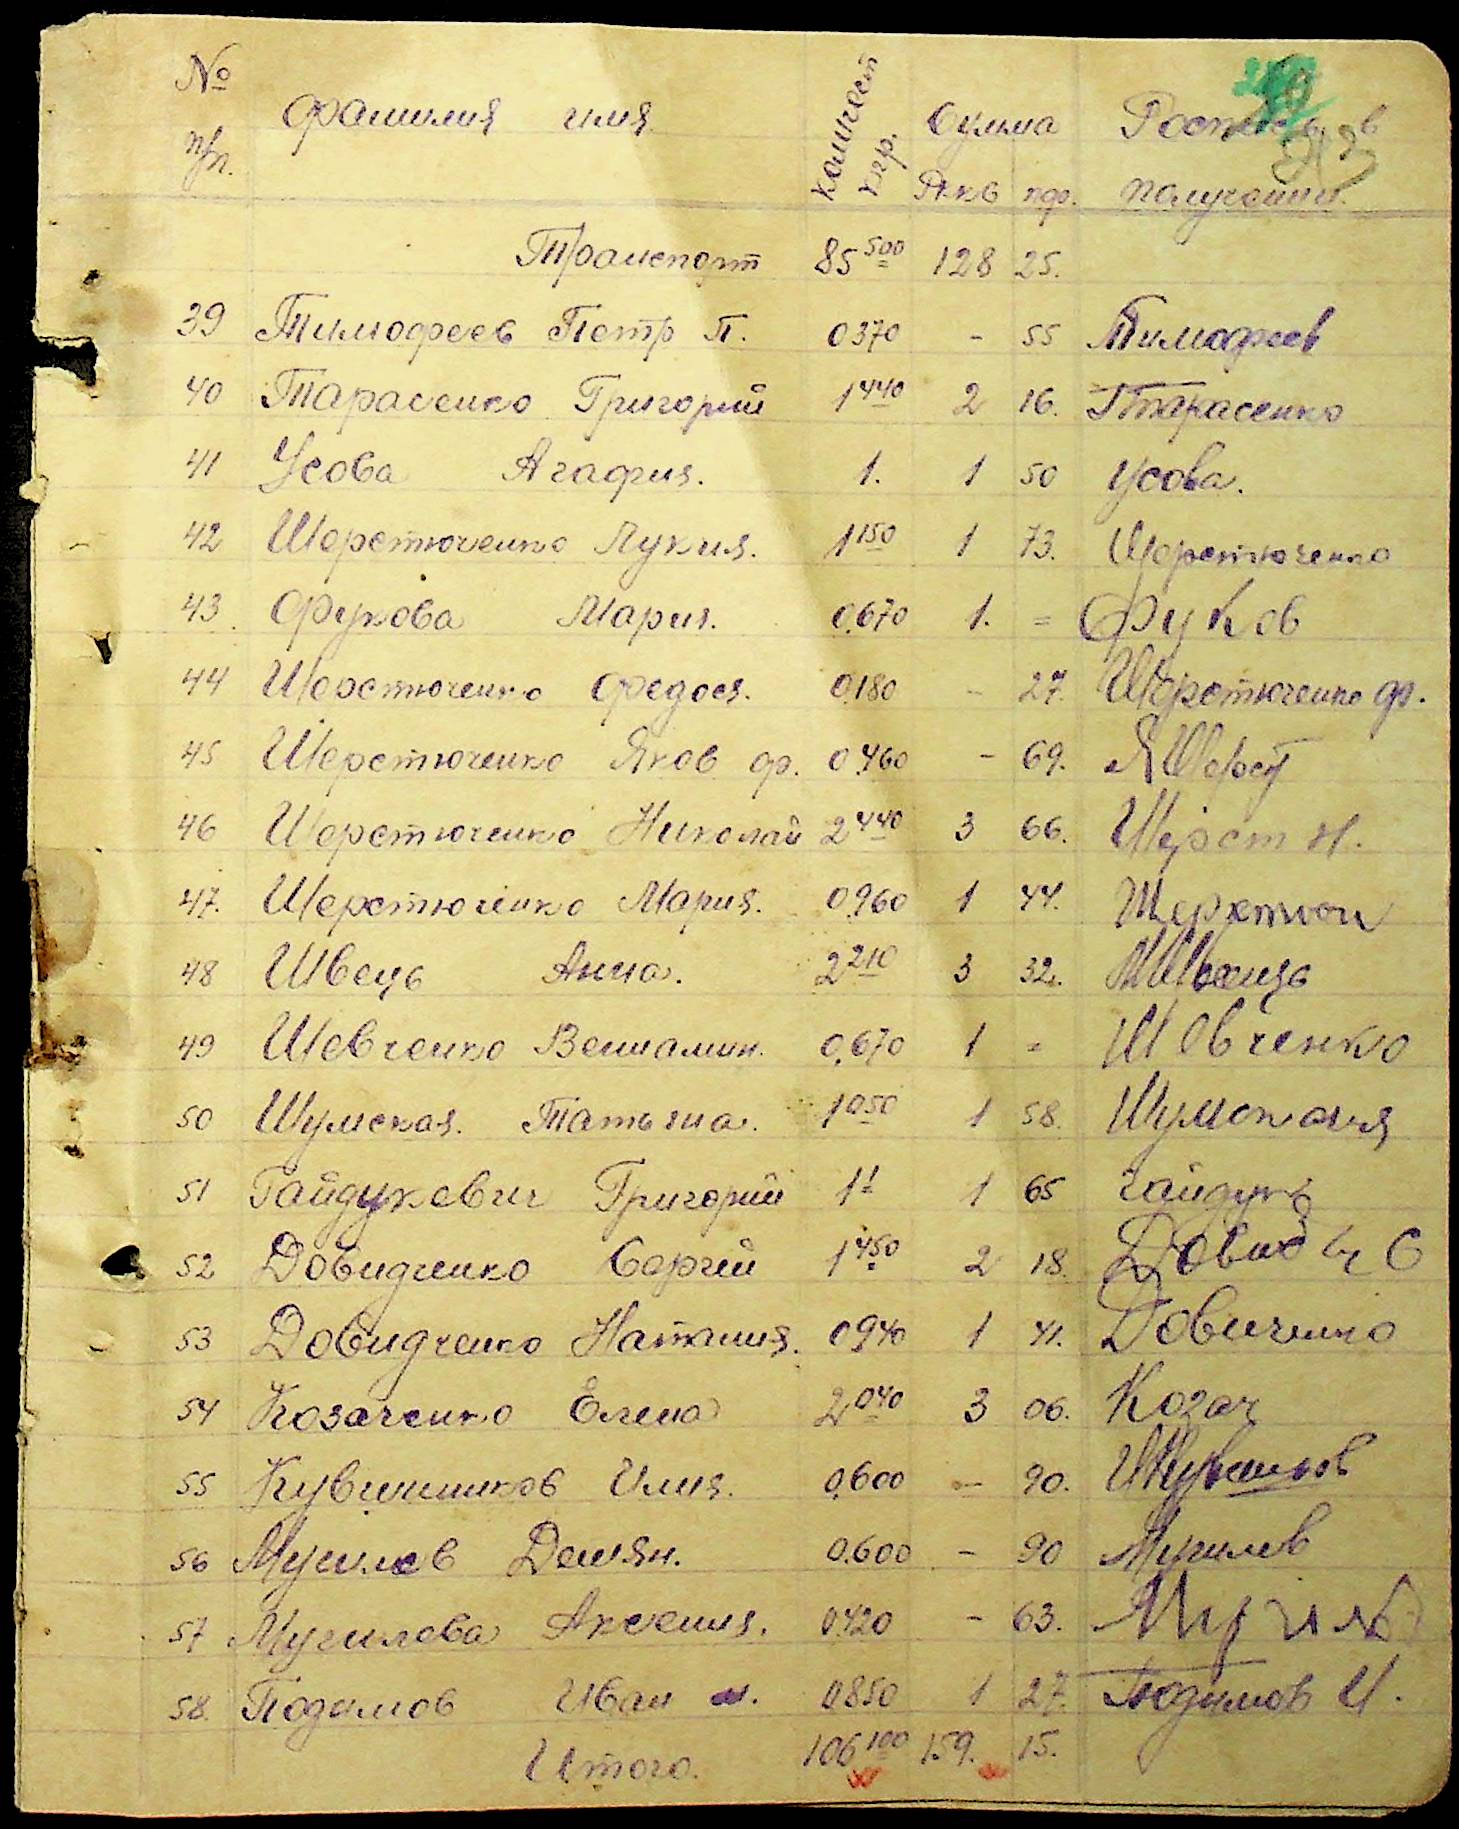 № п/п. фамилия имя количест кгр. Сумма Ркв пф. Роспись в получении.
Транспорт 85 500 128 25.
39 Тимофеев Петр П. 0370 - 55 Тимофеев
40 Тарасенко Григорий 1 440 2 16. Г Тарасенко
41 Усова Агафия. 1. 1 50 Усова.
42 Шерстюченко Лукия. 1 150 1 73. Шерстюченко
43. Фукова Мария. 0,670 1. = Фуков
44 Шерстюченко Федося. 0,180 - 27. Шерстюченко ф.
45 Шерстюченко Яков ф. 0,460 - 69. Я Шерст
46 Шерстюченко Николай 2 440 3 66. Шерст Н.
47. Шерстюченко Мария. 0,960 1 44. Шерстюч
48 Швець Анна. 2 210 3 32.
49 Шевченко Вениамин. 0,670 1 = Шевченко
50 Шумская. Татьяна. 1 050 1 58. Шумская
51 Гайдукевич Григорий 1 1 1 65 Гайдук
52 Довидченко Сергей 1 450 2 18. Довид С
53 Довидченко Наталия. 0940 1 41. Довиченко
54 Козаченко Елена 2 040 3 06. Козач
55 Кувшинников Илия. 0,600 - 90.
56 Мугилев Демян. 0.600 - 90 Мугилев
57 Мугилева Аксения. 0420 - 63.
58. Подимов Иван м. 0850 1 27. Подимов И.
Итого. 106 100 159. 15.